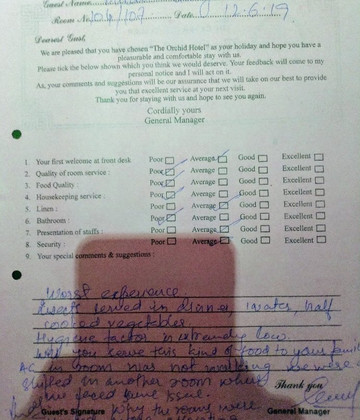 Guest Name
Room No. 106/107 Date 12-6-19
Dearest Guest,
We are pleased that you have chosen "The Orchid Hotel" as your holiday and hope you have a
pleasurable and comfortable stay with us.
Please tick the below shown which you think we would deserve. Your feedback will come to my
personal notice and I will act on it.
As, your comments and suggestions will be our assurance that we will take on our best to provide
you that excellent service at your next visit.
Thank you for staying with us and hope to see you again.
Cordially yours
General Manager
1. Your first welcome at front desk Poor Average Good Excellent
2. Quality of room service : Poor Average Good Excellent
3. Food Quality Poor Average Good Excellent
4. Housekeeping service : Poor Average Good Excellent
5. Linen : Poor Average Good Excellent
6. Bathroom : Poor Average Good Excellent
7. Presentation of staffs : Poor Average Good Excellent
8. Security : Poor Average Good Excellent
9. Your special comments & suggestions :
Worst experience.
Insect served in Dinner, water, half
cooked vegetables.
Hygiene factor extremely low.
Will you serve this kind of food to your family
AC in rooms was not working we were
shifted in another room where Thank you
we faced same issue.
Guest's Signature Why the rooms were General Manager